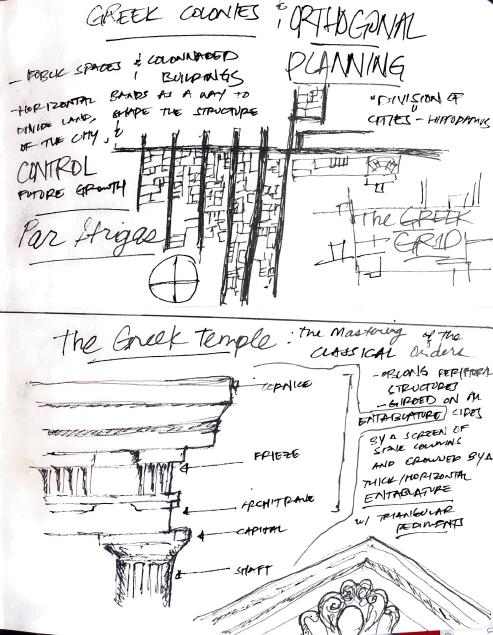 GREEK COLONIES & ORTHOGONAL
PLANNING
- PUBLIC SPACES & COLONNADED
BUILDINGS
- HORIZONTAL BANDS AS A WAY TO
DIVIDE LAND, SHAPE THE STRUCTURE
OF THE CITY, &
CONTROL
FUTURE GROWTH
Par Strigas
"DIVISION OF
CITIES" - HIPPODAMUS
The GREEK
GRID
The Greek Temple : the Mastering of the
CLASSICAL Orders
CORNICE
FRIEZE
ARCHITRAVE
CAPITAL
SHAFT
- OBLONG PERIPTERAL
STRUCTURES
- GIRDED ON ALL
ENTABLATURE SIDES
BY A SCREEN OF
STONE COLUMNS
AND CROWNED BY A
THICK/HORIZONTAL
ENTABLATURE
W/ TRIANGULAR
PEDIMENTS